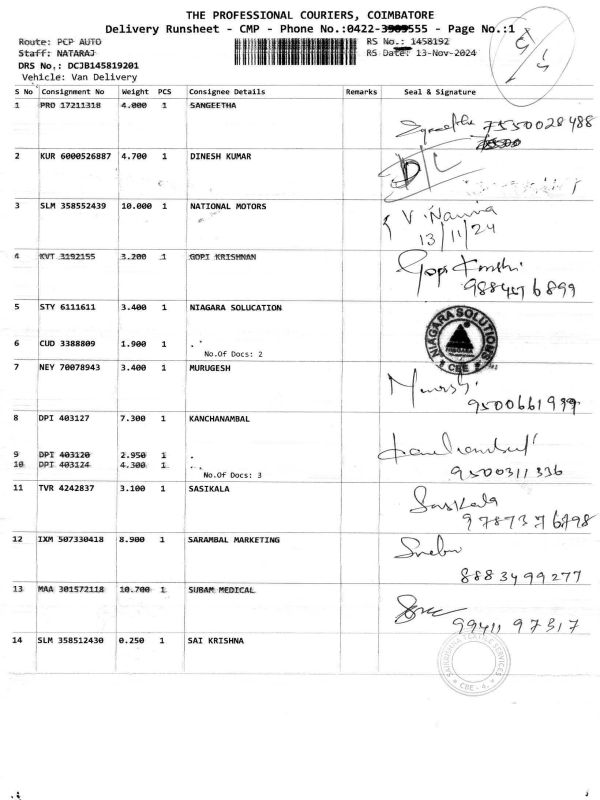 THE PROFESSIONAL COURIERS, COIMBATORE
Delivery Runsheet - CMP - Phone No.:0422- 555 - Page No.:1
Route: PCP AUTO RS No.: 1458192
Staff: NATARAJ RS Date: 13-Nov-2024
DRS No.: DCJB145819201
Vehicle: Van Delivery
S No Consignment No Weight PCS Consignee Details Remarks Seal & Signature
1 PRO 17211318 4.000 1 SANGEETHA
7550028488
2 KUR 6000526887 4.700 1 DINESH KUMAR
3 SLM 358552439 10.000 1 NATIONAL MOTORS
13/11/24
4 KVT 3192155 3.200 1 GOPI KRISHNAN
Gopi
5 STY 6111611 3.400 1 NIAGARA SOLUCATION
NIAGARA SOLUTIONS
NIAGARA
CBE
6 CUD 3388809 1.900 1 .
No.Of Docs: 2
7 NEY 70078943 3.400 1 MURUGESH
9500661999
8 DPI 403127 7.300 1 KANCHANAMBAL
9 DPI 403120 2.950 1 .
10 DPI 403124 4.300 1 .
No.Of Docs: 3
9500311336
11 TVR 4242837 3.100 1 SASIKALA
Sasikala
9787376798
12 IXM 507330418 8.900 1 SARAMBAL MARKETING
8883499277
13 MAA 301572118 10.700 1 SUBAM MEDICAL
9941197317
14 SLM 358512430 0.250 1 SAI KRISHNA
CBE - 4.